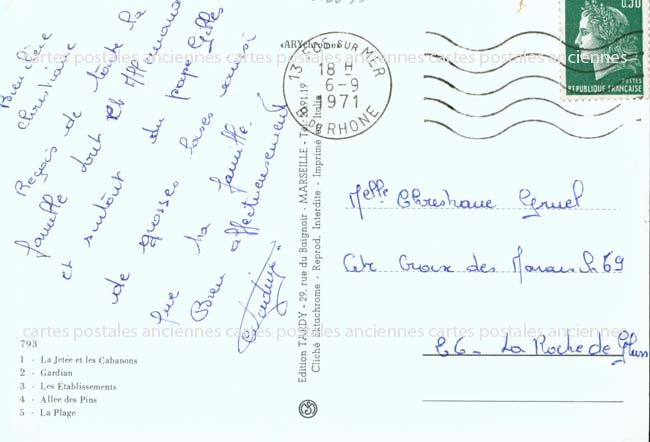 Bien chère
Christiane
Reçois de toute la
famille dont et maman
et surtout du papa Gilles
de grosses bises ainsi
que ta famille.
Bien affectueusement
793
1 - La Jetée et les Cabanons
2 - Gardian
3 - Les Établissements
4 - Allée des Pins
5 - La Plage
«ARYchrome»
Edition TARDY - 29, rue du Baignoir - MARSEILLE - Tél. 20.91.19
Cliché Ektachrome - Reprod. Interdite - Imprimé en Italie
13 SUR MER
18 H
6-9
1971
B. DU RHONE
0.30
POSTES
REPUBLIQUE FRANÇAISE
Melle Christiane Gruel
Croix des Marais
La Roche de Glun
cartes postales anciennes cartes postales anciennes cartes postales anciennes
cartes postales anciennes cartes postales anciennes cartes postales anciennes